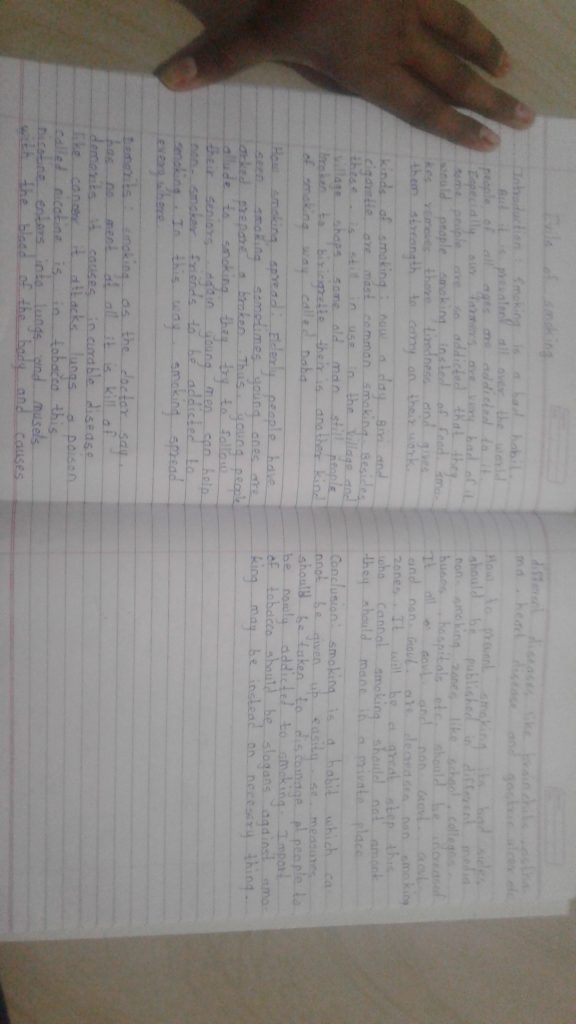 Evils of smoking
Introduction smoking is a bad habit.
But it is prevalent all over the world
people of all ages are addicted to it.
Especially our farmers are very bad of it
some people are so addicted that they
would people smoking insted of food smo-
kes removes there tiredness and gives
them strength to carry on their work.
kinds of smoking: now a day Biri and
cigarette are most common smoking. Besides
these is still in use in the village and
village shops some old man still people
broken to biri cigarette their is another kind
of smoking way called
How smoking spread Elderly people have
seen smoking sometimes young ones are
asked prepare a broken. Thus, young people
allude to smoking they try to follow
their seniors again Young men can help
non smoker friends to be addicted to
smoking. In this way smoking spread
every where
Demerits: smoking as the doctor say,
has no merit at all it is kill of
demerits is causes in curable disease
like cancer it attacks lungs a poison
called nicotine is in tobacco this
nicotine enters into lungs and musels
with the blood of the body and causes
different diseases like bronchitis, asthm
ma, heart disease and gastric ulcer etc
How to prevent smoking its bad sides
should be published in different media
non smoking zones like school, colleges,
houses, hospitals etc, should be increased
It all govt and non govt
and non Govt. are decreases non smoking
zones. It will be a great step this
who cannot smoking should not
they should made in a private place
Conclusion: smoking is a habit which ca
nnot be given up easily. so measures
should be taken to discourage people to
be newly addicted to smoking. Import
of tobacco should be slogans against smo-
king may be instead on necessry thing.